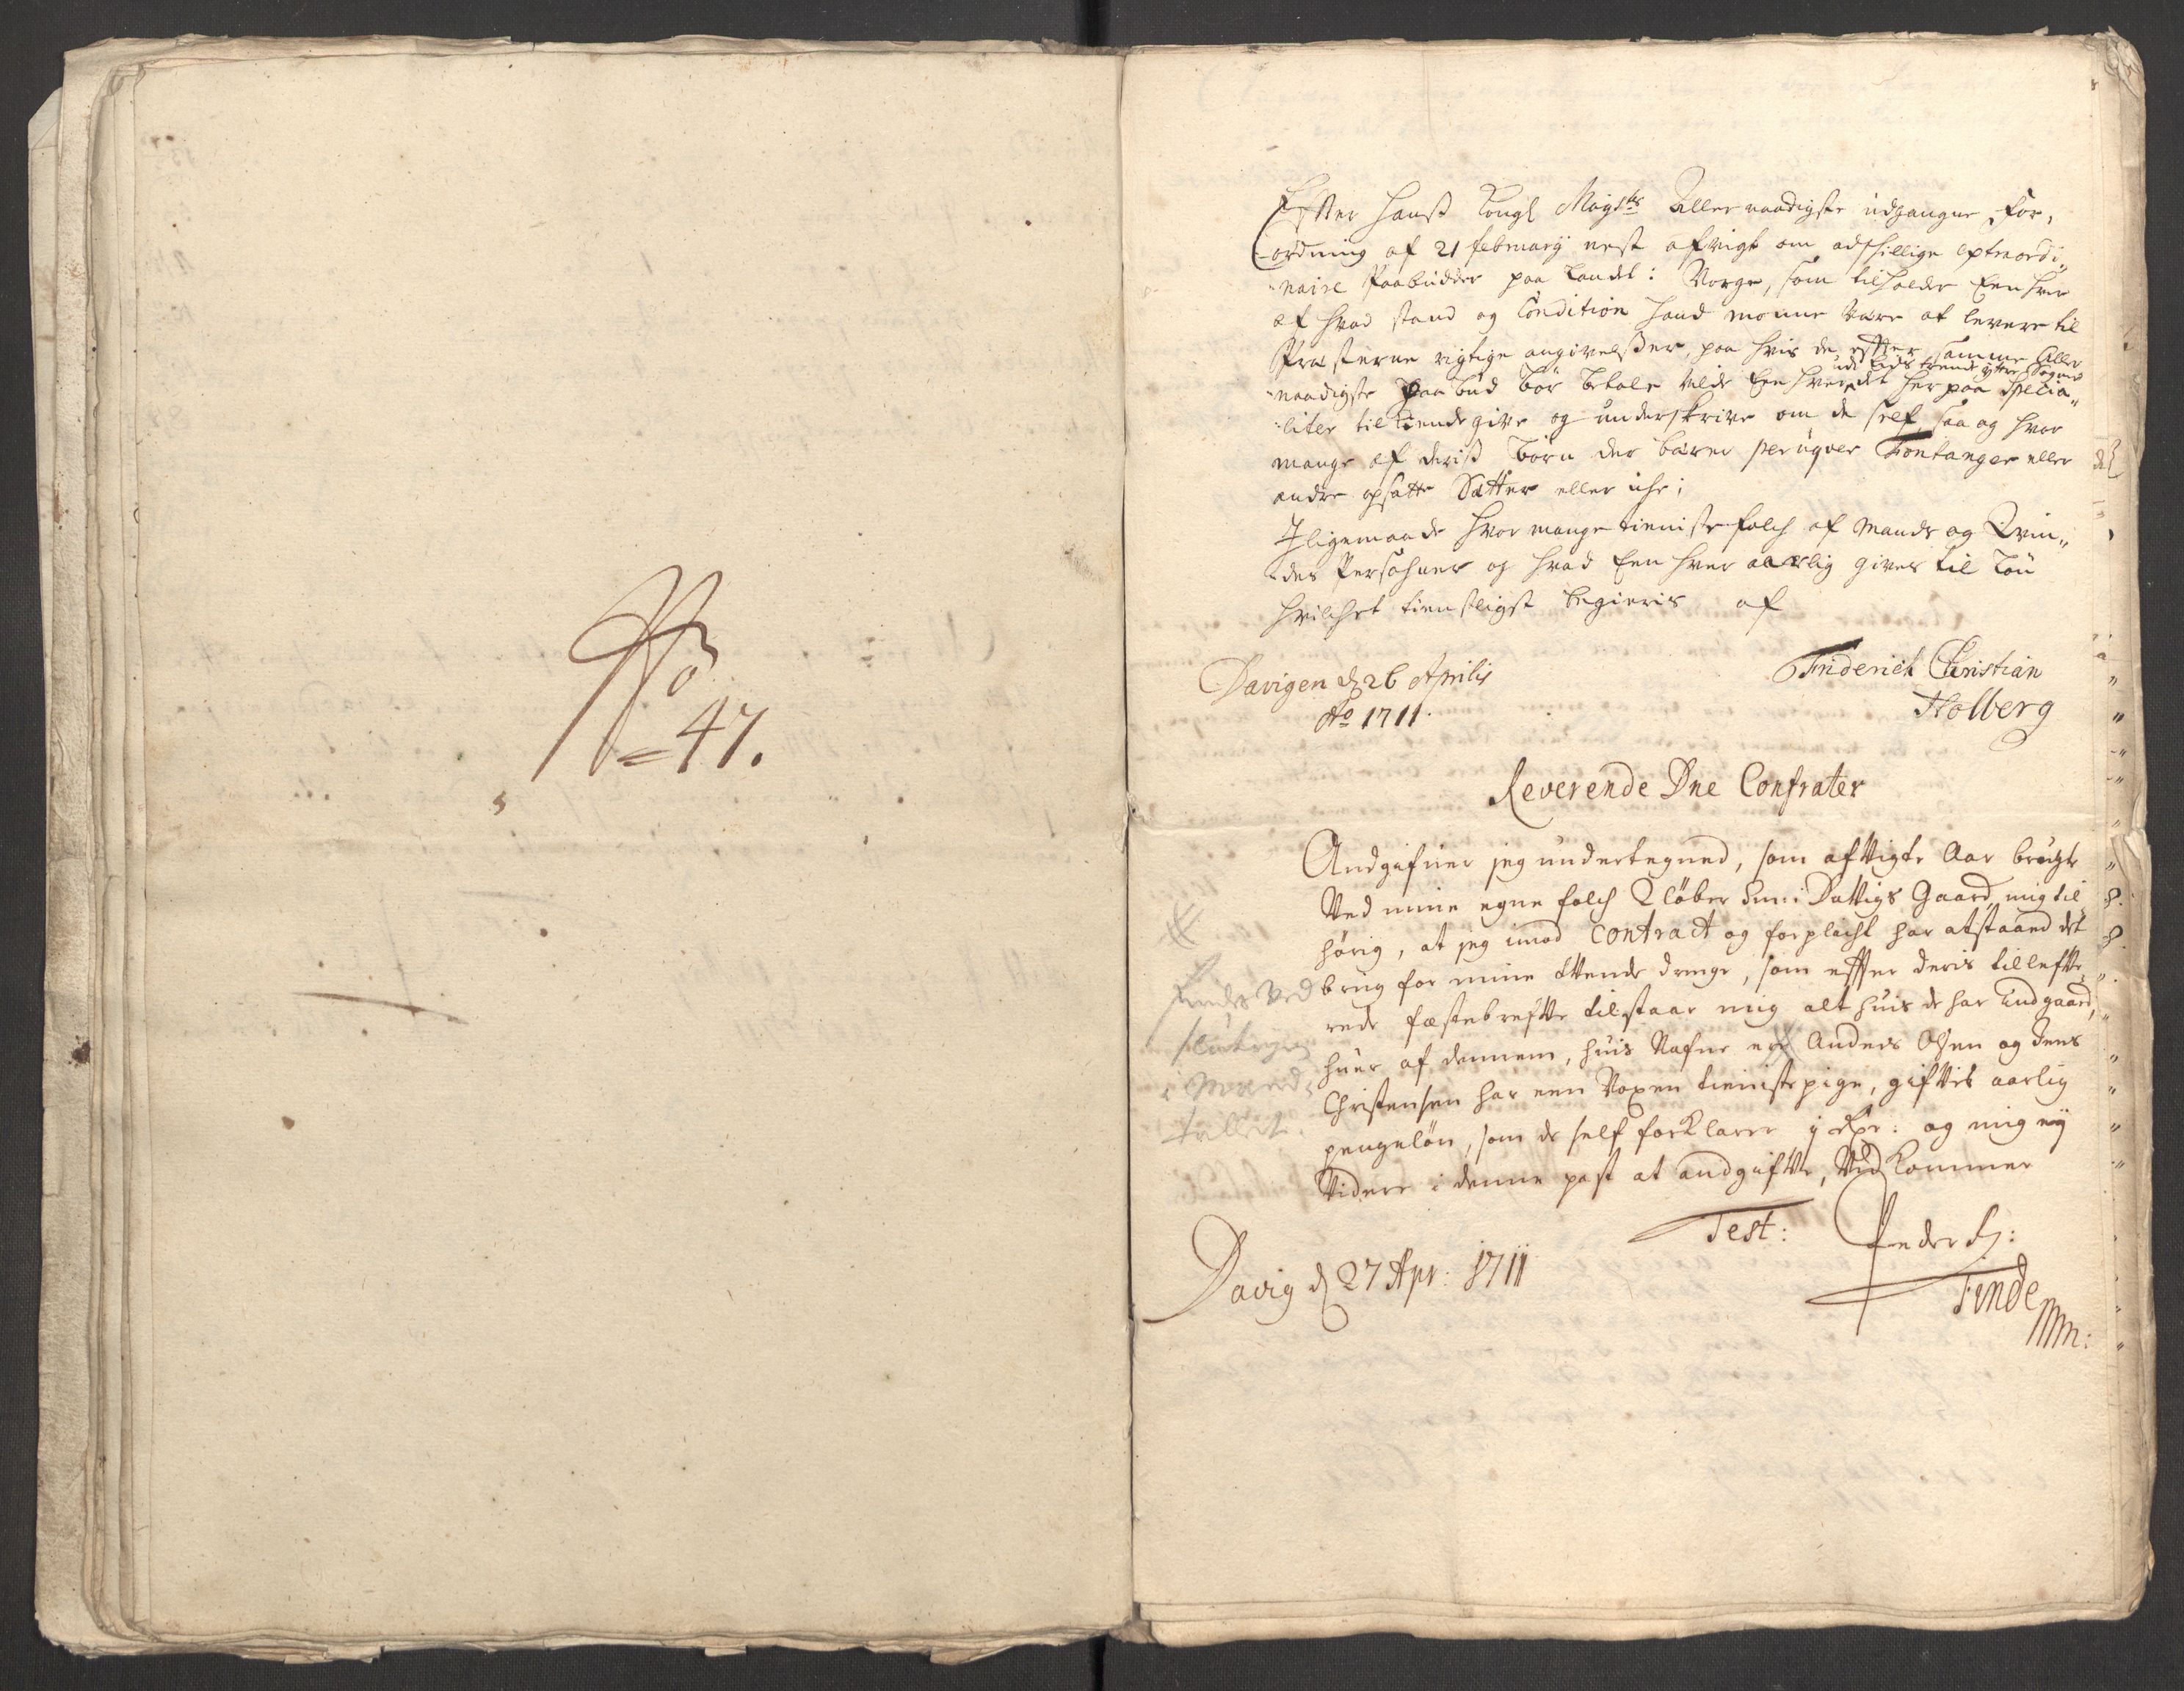 No
47.
Efter Hanß Kongl Mayts Allernaadigste udgangne For,
ordning af 21 february nest afvigt om adskillige Extraordi,,
naire Paabudder paa Landet: Norge, som tilholder Een hver
af hvad stand og Condition hand monne være at levere til
Præsterne rigtige angivelsßer, paa hvis de efter samme Aller
naadigste Paabud bør betale vilde Een hver det her paa Specia,,
udi Eids Sogne
liter tilkiende give og underskrive om de self, saa og hvor
mange af deriß Børn der bærer peruqver Fontanger eller
andre opsatte Sætter eller iche;
Jligemaade hvor mange tieniste folch af Mands og Qvin,,
des Persohner og hvad Een hver aarlig gives til Løn
hvilchet tienstligst begieris af
Davigen d 26 Aprilis
Ao 1711.
Friderich Christian
Holberg
Reverende Dne Confrater
Andgifver jeg undertegned, som afvigte Aar brugte
Ved mine egne folch Davigs Gaard mig til
hørig, at jeg imod Contract og forplicht har afstaaed det
brug for mine tvende drenge, som efter deris tilleffve,
rede fæstebrefve tilstaar mig alt huis de har indgaaed,
huer af dennem, huis Nafne ere Anders Olsen og Jens
Christensen har een Voxen tienistepige, gifves aarlig
pengeløn, som de self forklarer ij Rdr: og mig ej
Videre i denne post at andgifve, Vedkommer
Findes Ved
i Mand,
tallet.
Test: Peder H:
Finde
Mm:
Davig d 27 Apr: 1711